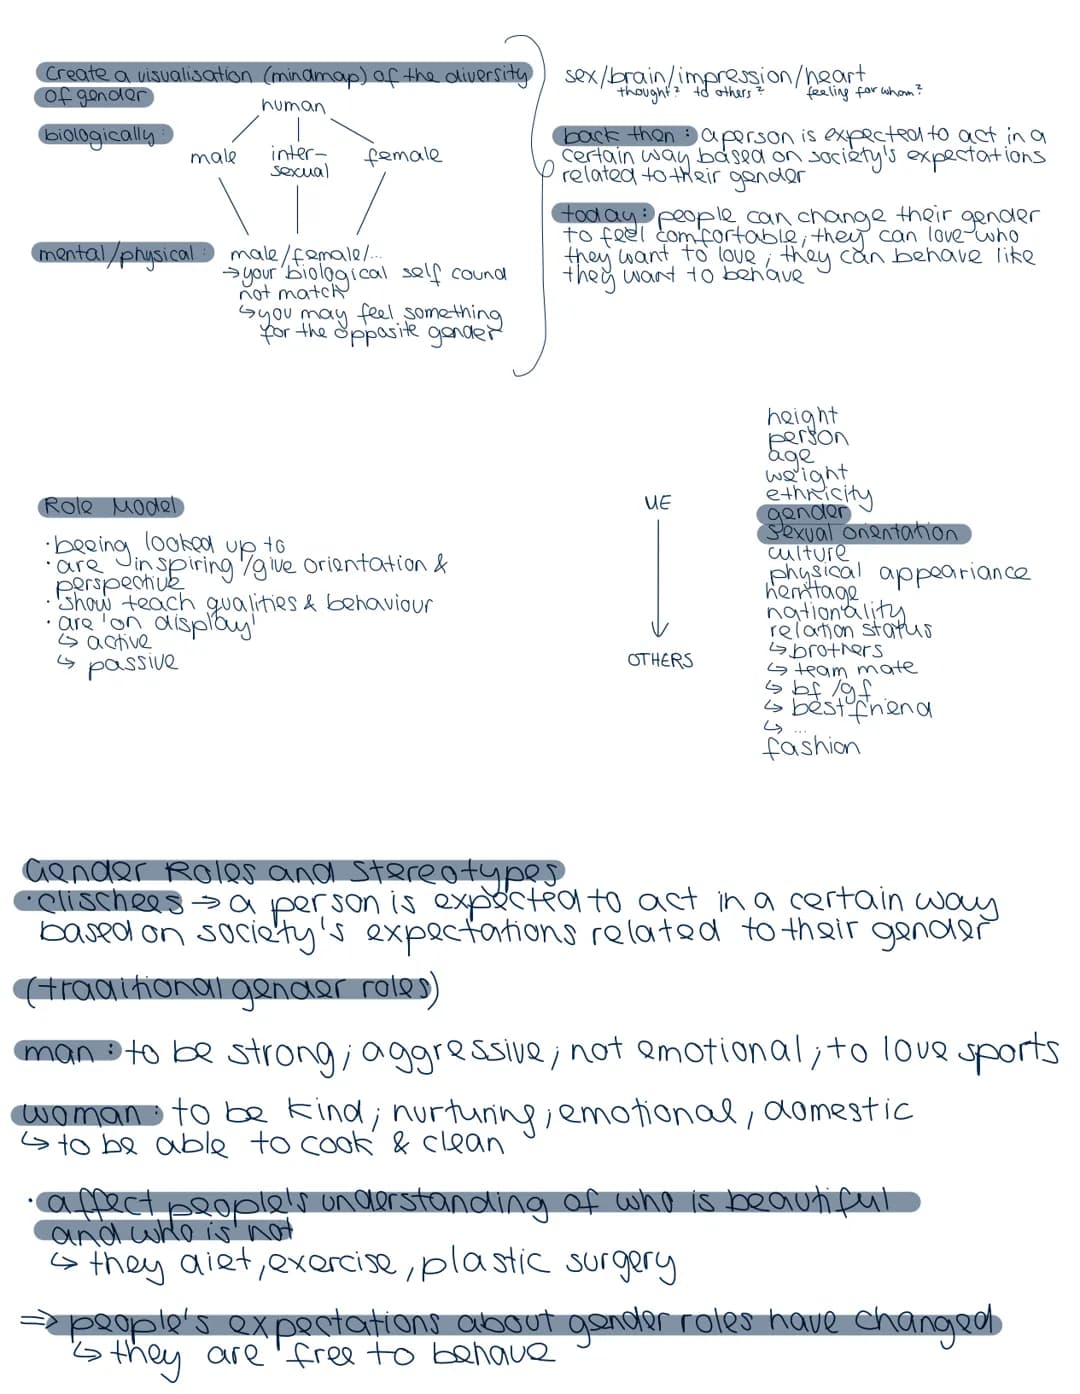 create a visualisation (mindmap) of the diversity
of gender
human
biologically:
male
inter-
sexual
female
mental/physical:
male/female/...
→your biological self cound
not match
↳you may feel something
for the opposite gender
sex/brain/impression/heart
thought? to others? feeling for whom?
back then: a person is expected to act in a
certain way based on society's expectations
related to their gender
today: people can change their gender
to feel comfortable; they can love who
they want to love; they can behave like
they want to behave
Role Model
·beeing looked up to
·are inspiring/give orientation &
perspective
·show teach qualities & behaviour
·are 'on display'
↳ active
↳ passive
ME
OTHERS
height
person
age
weight
ethnicity
gender
sexual orientation
culture
physical appeariance
heritage
nationality
relation status
↳brothers
↳ team mate
↳ bf/gf
↳ best friend
↳ ...
fashion
Gender Roles and Stereotypes
·clischees → a person is expected to act in a certain way
based on society's expectations related to their gender
(traditional gender roles)
man: to be strong; aggressive; not emotional; to love sports
woman: to be kind; nurturing; emotional, domestic
↳ to be able to cook & clean
·affect people's understanding of who is beautiful
and who is not
↳ they diet, exercise, plastic surgery
⇒ people's expectations about gender roles have changed
↳ they are free to behave